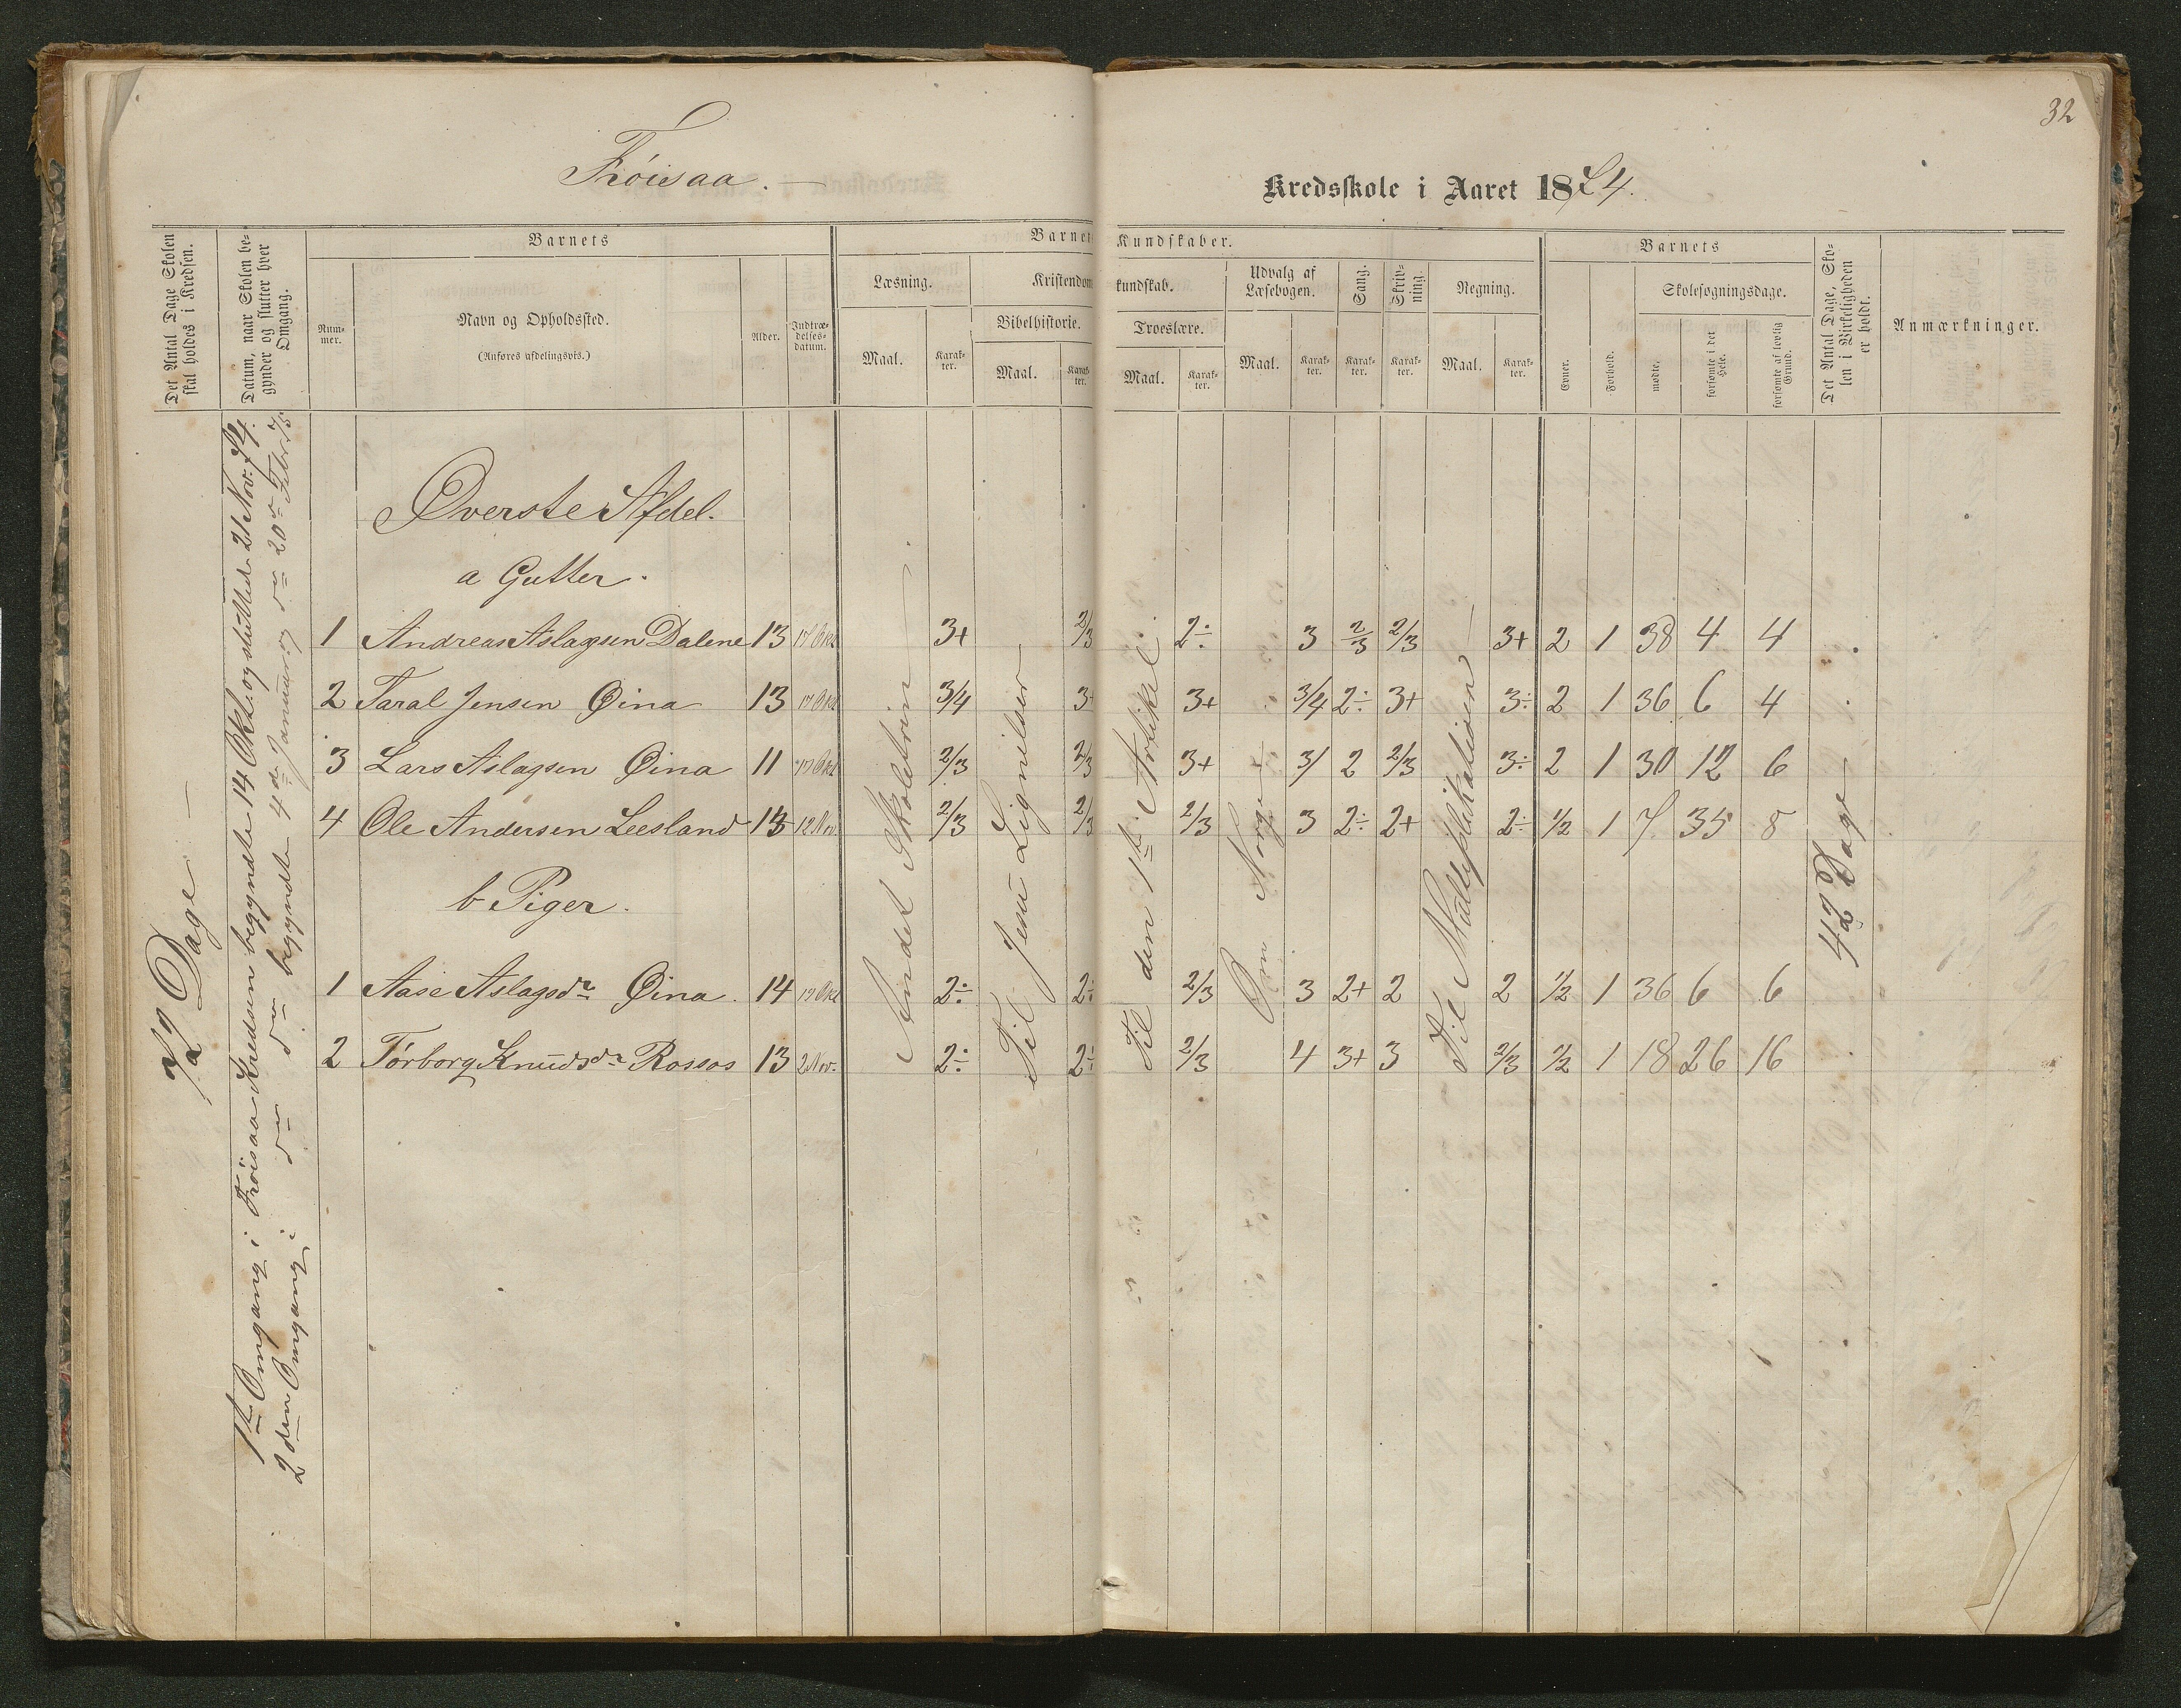 32
Frøisaa. —
Kredsskole i Aaret 1874.
Det Antal Dage Skolen skal holdes i Kredsen.
Datum, naar Skolen begynder og slutter hver Omgang.
Barnets
Nummer.
Navn og Opholdssted.
(Anføres afdelingsvis.)
Alder.
Indtrædelsesdatum.
Barnets Kundskaber.
Læsning.
Maal.
Karakter.
Kristendomskundskab.
Bibelhistorie.
Maal.
Karakter.
Troeslære.
Maal.
Karakter.
Udvalg af Læsebogen.
Maal.
Karakter.
Sang.
Karakter.
Skrivning.
Karakter.
Regning.
Maal.
Karakter.
Barnets
Evner.
Forhold.
Skolesøgningsdage.
mødte.
forsømte i det Hele.
forsømte af lovlig Grund.
Det Antal Dage, Skolen i Virkeligheden er holdt.
Anmærkninger.
72 Dage —
1ste Omgang i Frøisaa Kredsen begyndte 14 Okt. og sluttede 21 Nov. 74.
2den Omgang i do do begyndte 4de Januar og do 20de Febr 75
Øverste Afdel.
a Gutter.
1 Andreas Aslagsen Dalene 13 17 Okt 3+ 2/3 2÷ 3 2/3 2/3 3+ 2 1 38 4 4
2 Taral Jensen Øina 13 17 Okt 3/4 3+ 3+ 3/4 2÷ 3+ 3÷ 2 1 36 6 4
3 Lars Aslagsen Øina 11 17 Okt 2/3 2/3 3+ 3/ 2 2/3 3÷ 2 1 30 12 6
4 Ole Andersen Leesland 13 12 Nov. 2/3 2/3 2/3 3 2÷ 2+ 2÷ 1/2 1 7 35 8
b Piger.
1 Aase Aslagsdr Øina. 14 17 Okt 2÷ 2÷ 2/3 3 2+ 2 2 1/2 1 36 6 6
2 Torborg Knudsdr Rossos 13 2 Nov. 2÷ 2÷ 2/3 4 3+ 3 2/3 1/2 1 18 26 16
Andet Skoletrin —
Til Jesu Lignelser
Til den 1ste Artikel.
Om Norge —
Til Multiplikationen —
42 Dage —